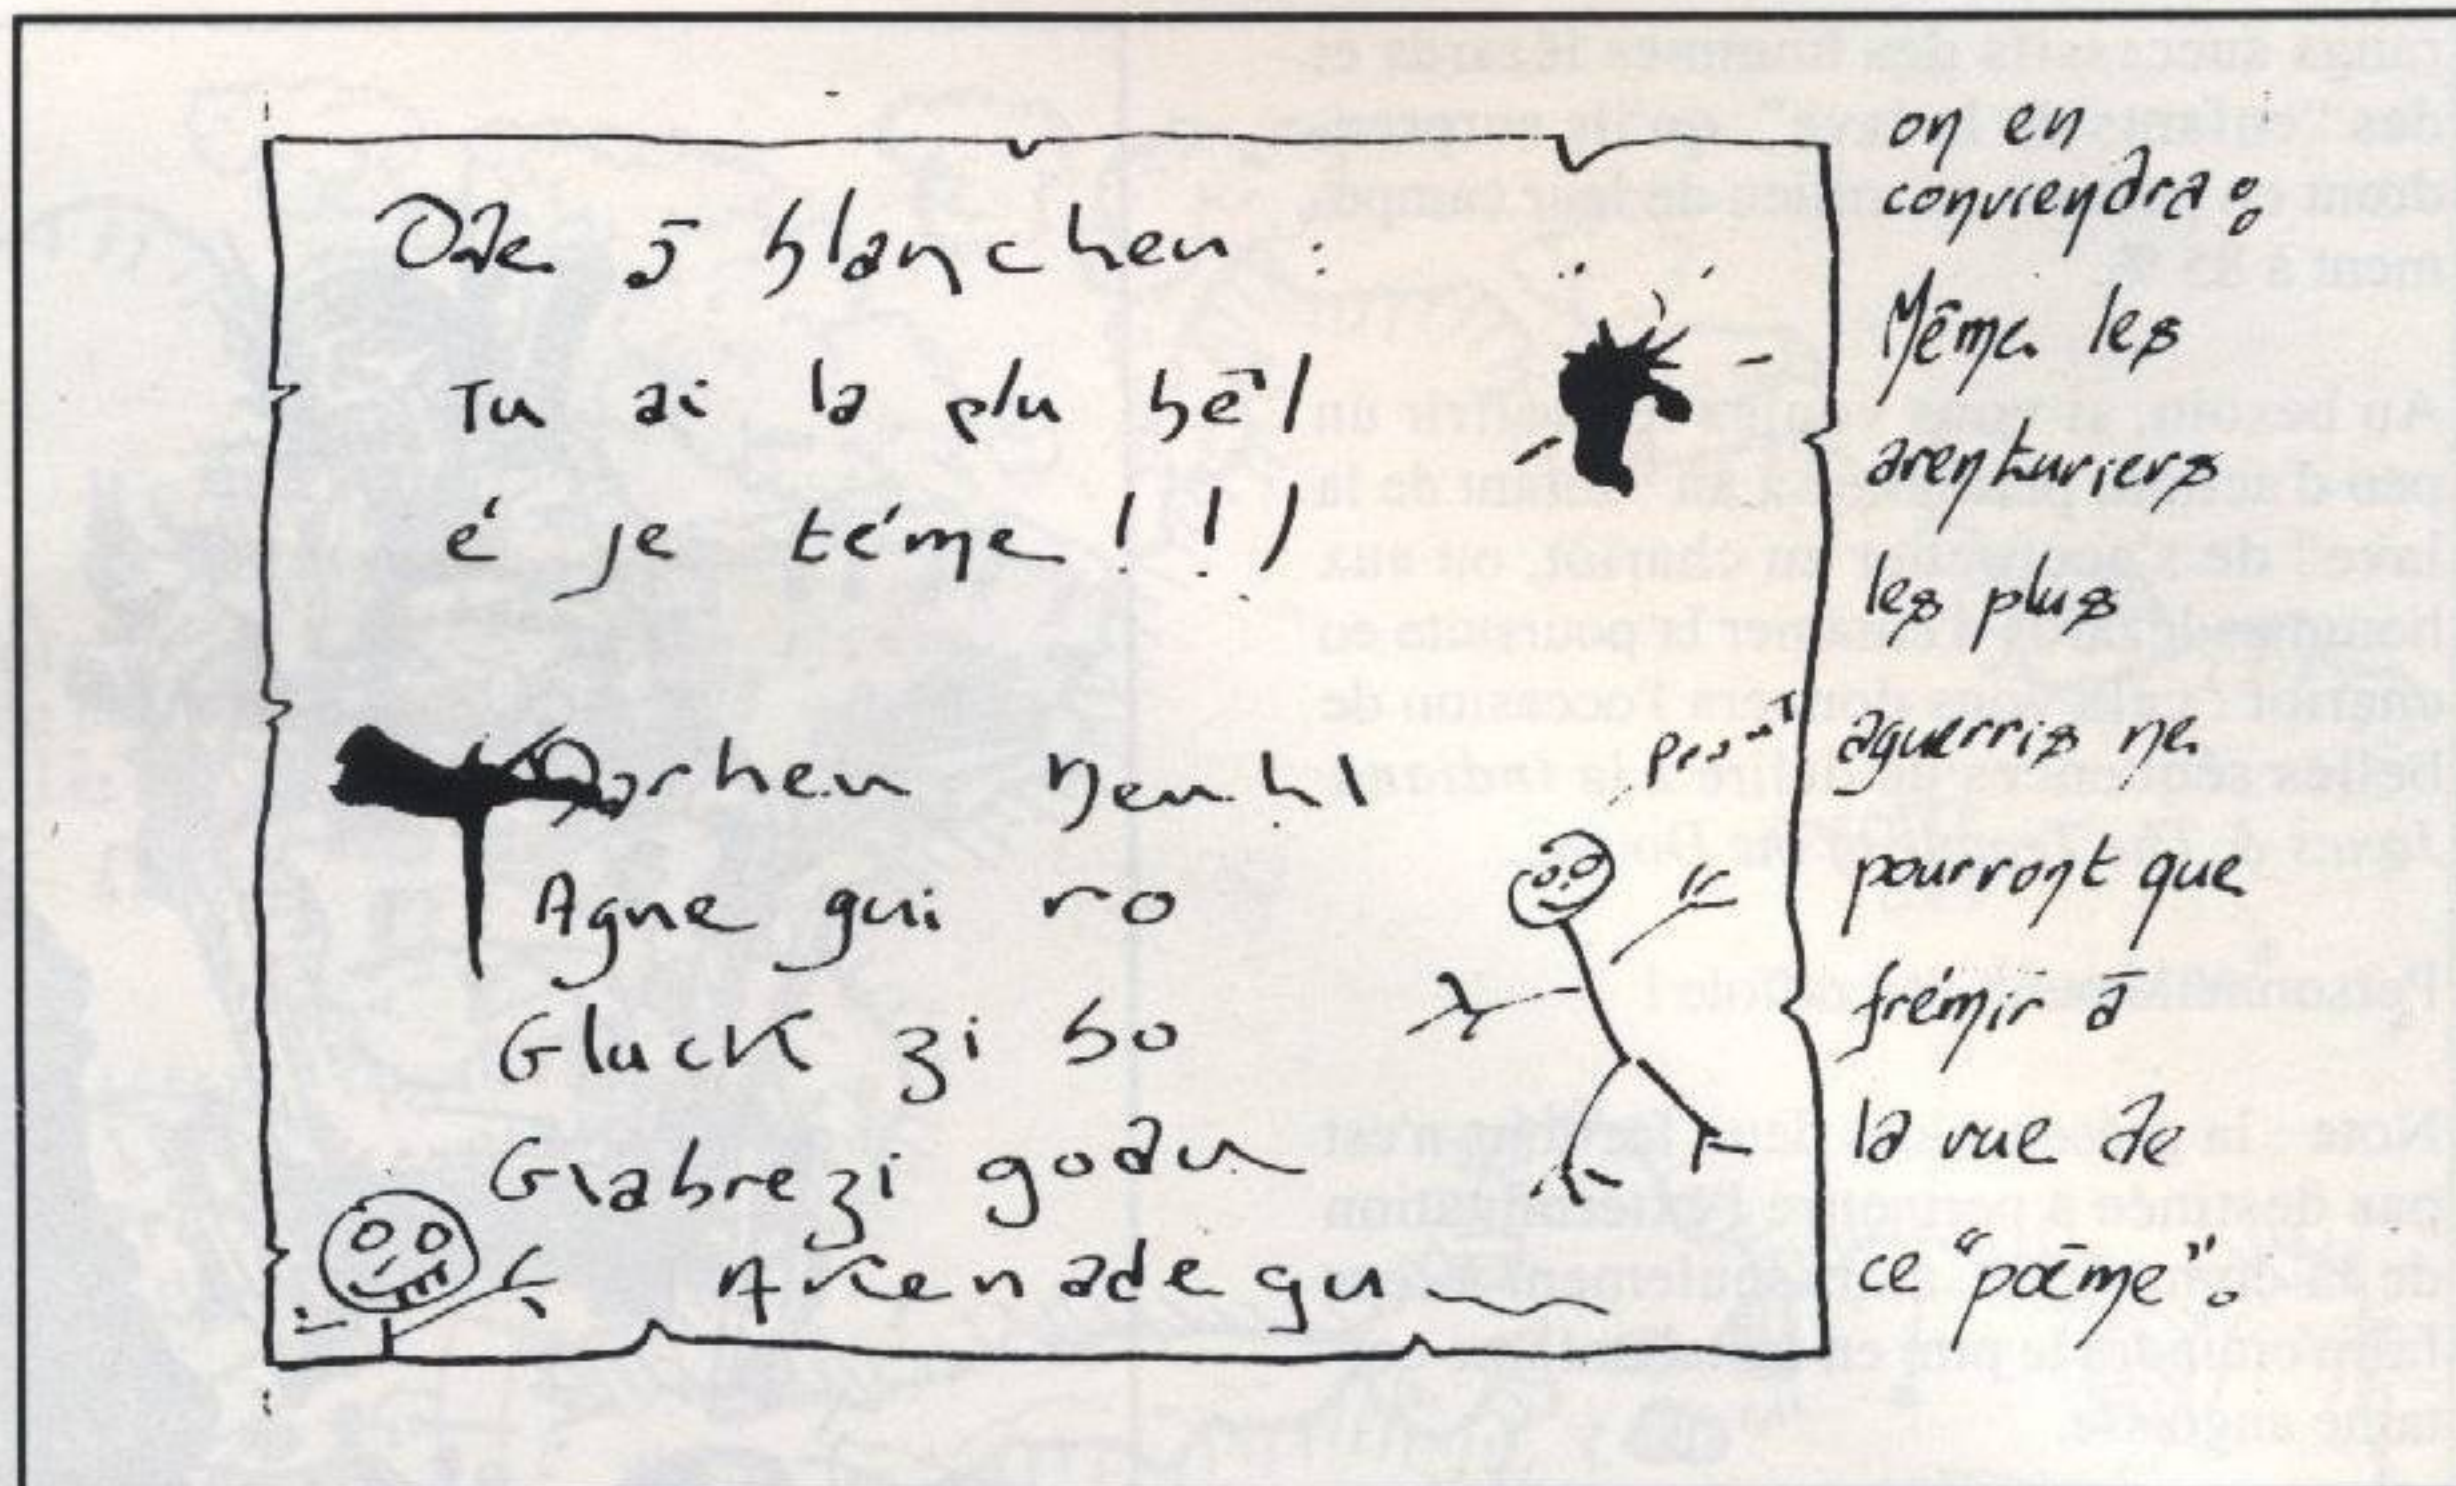 Ode à blancheu :
Tu ai la plu bêl
é je téme ! ! !
Agne gui ro
Gluck zi bo
Glabrezi godu
Akenadegu
on en
conviendra :
Même les
aventuriers
les plus
aguerris ne
pourront que
frémir à
la vue de
ce "poème".